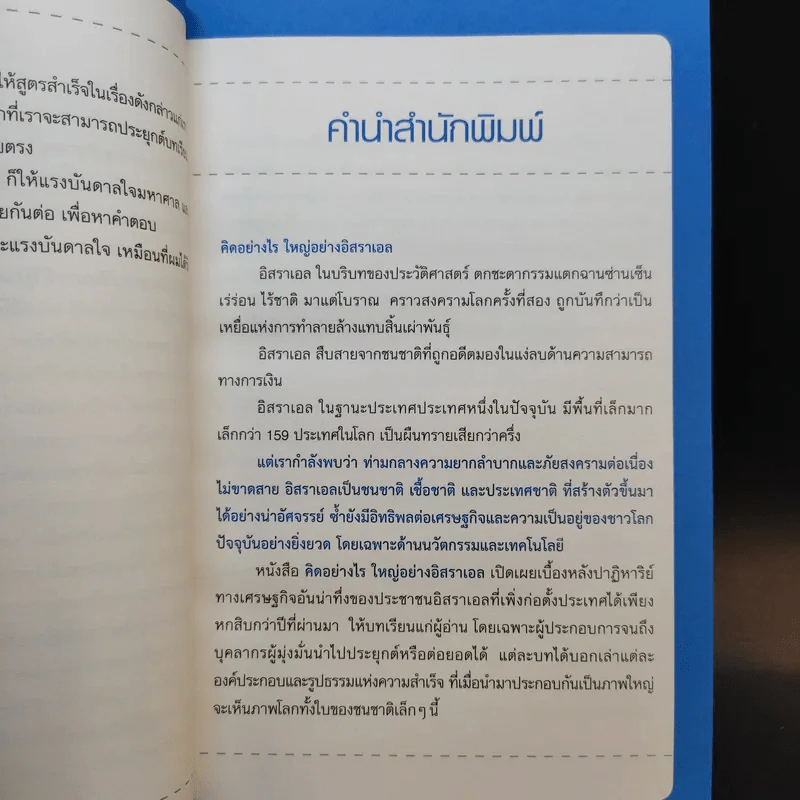 ให้สูตรสำเร็จในเรื่องดังกล่าวแก่เรา
ที่เราจะสามารถประยุกต์บทเรียน
ตรง
ก็ให้แรงบันดาลใจมหาศาล
กันต่อ เพื่อหาคำตอบ
แรงบันดาลใจ เหมือนที่ผมได้
คำนำสำนักพิมพ์
คิดอย่างไร ใหญ่อย่างอิสราเอล
อิสราเอล ในบริบทของประวัติศาสตร์ ตกชะตากรรมแตกฉานซ่านเซ็น
เร่ร่อน ไร้ชาติ มาแต่โบราณ คราวสงครามโลกครั้งที่สอง ถูกบันทึกว่าเป็น
เหยื่อแห่งการทำลายล้างแทบสิ้นเผ่าพันธุ์
อิสราเอล สืบสายจากชนชาติที่ถูกอดีตมองในแง่ลบด้านความสามารถ
ทางการเงิน
อิสราเอล ในฐานะประเทศประเทศหนึ่งในปัจจุบัน มีพื้นที่เล็กมาก
เล็กกว่า 159 ประเทศในโลก เป็นผืนทรายเสียกว่าครึ่ง
แต่เรากำลังพบว่า ท่ามกลางความยากลำบากและภัยสงครามต่อเนื่อง
ไม่ขาดสาย อิสราเอลเป็นชนชาติ เชื้อชาติ และประเทศชาติ ที่สร้างตัวขึ้นมา
ได้อย่างน่าอัศจรรย์ ซ้ำยังมีอิทธิพลต่อเศรษฐกิจและความเป็นอยู่ของชาวโลก
ปัจจุบันอย่างยิ่งยวด โดยเฉพาะด้านนวัตกรรมและเทคโนโลยี
หนังสือ คิดอย่างไร ใหญ่อย่างอิสราเอล เปิดเผยเบื้องหลังปาฏิหาริย์
ทางเศรษฐกิจอันน่าทึ่งของประชาชนอิสราเอลที่เพิ่งก่อตั้งประเทศได้เพียง
หกสิบกว่าปีที่ผ่านมา ให้บทเรียนแก่ผู้อ่าน โดยเฉพาะผู้ประกอบการจนถึง
บุคลากรผู้มุ่งมั่นนำไปประยุกต์หรือต่อยอดได้ แต่ละบทได้บอกเล่าแต่ละ
องค์ประกอบและรูปธรรมแห่งความสำเร็จ ที่เมื่อนำมาประกอบกันเป็นภาพใหญ่
จะเห็นภาพโลกทั้งใบของชนชาติเล็กๆ นี้